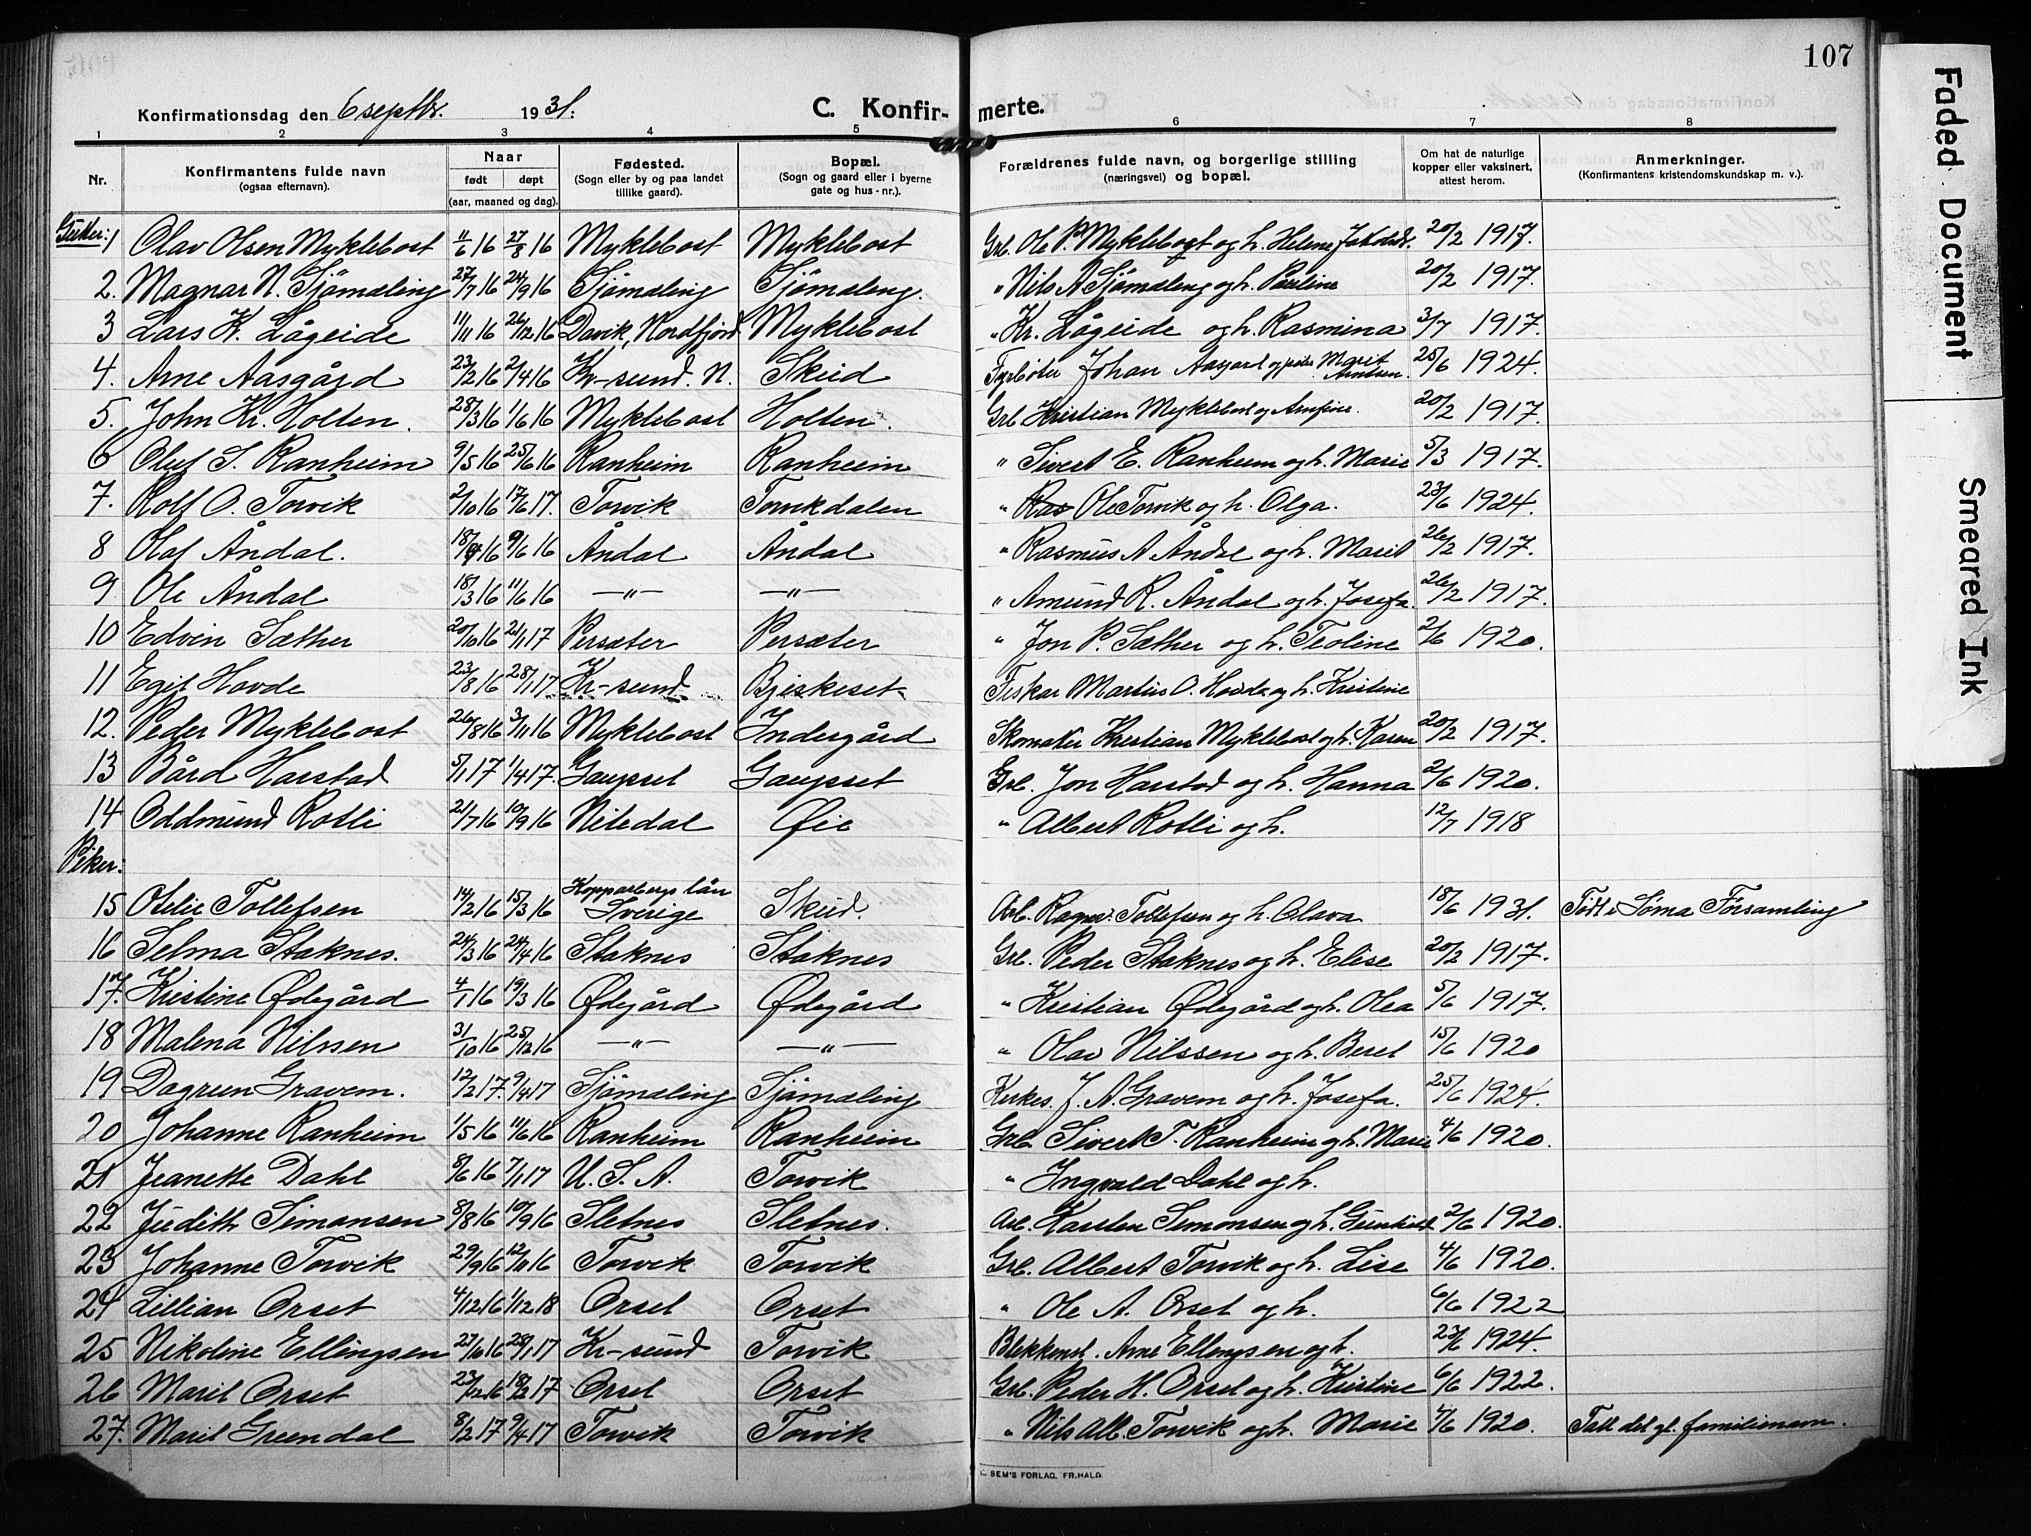 107
Konfirmationsdag den 6 septbr. 1931.
C. Konfirmerte.
1 2 3 4 5 6 7 8
Nr. Konfirmantens fulde navn (ogsaa efternavn). Naar født døpt (aar, maaned og dag). Fødested. (Sogn eller by og paa landet tillike gaard). Bopæl. (Sogn og gaard eller i byerne gate og hus-nr.). Forældrenes fulde navn, og borgerlige stilling (næringsvei) og bopæl. Om hat de naturlige kopper eller vaksinert, attest herom. Anmerkninger. (Konfirmantens kristendomskundskap m. v.).
Gutter:
1 Olav Olsen Myklebost 11/6 16 27/8 16 Myklebost Myklebost Grb. Ole P. Myklebost og h. Helene 20/2 1917.
2. Magnar N. Sjømæling 27/7 16 24/9 16 Sjømæling Sjømæling. " Nils A Sjømæling og h. Pauline 20/2 1917.
3 Lars K. Lågeide 11/11 16 26/12 16 Davik, Nordfjord Myklebost " Kr. Lågeide og h. Rasmina 3/7 1917.
4. Arne Aasgård 23/2 16 2/4 16 Kr-sund. N. Skeid Fyrbøter Johan Aasgard og Marit Arntsen. 25/6 1924.
5. John Kr. Holten. 28/3 16 1/6 16 Myklebost Holten. Grb. Kristian Myklebost og Arnfine. 20/2 1917.
6 Oluf S. Ranheim 9/5 16 25/6 16 Ranheim Ranheim " Sivert E. Ranheim og h. Marie 5/3 1917.
7. Rolf O. Torvik 2/10 16 17/6 17. Torvik Torvikdalen " Ras Ole Torvik og h. Olga. 23/6 1924.
8 Olaf Åndal. 18/4 16 9/6 16 Åndal Åndal " Rasmus A. Åndal og h. Marit 26/2 1917.
9 Ole Åndal 18/3 16 11/6 16 —"— —"— " Amund R. Åndal og h. Josefa. 26/2 1917.
10 Edvin Sæther 20/10 16 21/1 17 Persæter Persæter " Jon P. Sæther og h. Teoline 2/6 1920.
11 Egil Hovde 23/8 16 28/1 17 Kr-sund Bjerkeset Fiskar Martius O. Hovde og h. Kristine
12. Peder Myklebost 26/8 16 3/11 16 Myklebost Indergård Skomaker Kristian Myklebost og h. Karen 20/2 1917.
13 Bård Harstad 5/1 17 1/4 17. Gaupset Gaupset Grb. Jon Harstad og h. Hanna 2/6 1920.
14 Oddmund Rotli 21/7 16 10/9 16 Nitedal Øie " Albert Rotli og h. 12/7 1918
Piker:
15 Otelie Tollefsen 14/2 16 15/3 16 Kopparbergs län Sverige Skeid. Arb. Ragnv. Tollefsen og h. Olava 18/6 1931. Født i Särna Församling
16 Selma Staknes. 24/3 16 24/4 16 Staknes Staknes Grb. Peder Staknes og h. Elise 20/2 1917.
17. Kristine Ødegård 4/1 16 19/3 16 Ødegård Ødegård " Kristian Ødegård og h. Olea 5/6 1917.
18 Malena Nilssen 31/10 16 25/12 16 —"— —"— " Olav Nilssen og h. Beret 15/6 1920
19 Dagrun Gravem. 12/2 17. 9/4 17 Sjømæling Sjømæling Kirkes. J. A. Gravem og h. Josefa. 25/6 1924.
20 Johanne Ranheim 1/5 16 11/6 16 Ranheim Ranheim Grb. Sivert T. Ranheim og h. Marie 4/6 1920.
21 Jeanette Dahl 8/6 16 7/1 17 U. S. A. Torvik " Ingvald Dahl og h.
22 Judith Simonsen 8/8 16 10/9 16 Sletnes Sletnes. Arb. Karsten Simonsen og h. Gunhild 2/6 1920.
23 Johanne Torvik 29/9 16 12/11 16 Torvik Torvik Grb. Albert Torvik og h. Lise 4/6 1920.
24 Lillian Orset 4/12 16 1/12 18 Orset Orset " Ole A. Orset og h. 6/6 1922
25 Nikoline Ellingsen 27/10 16 28/1 17 Kr-sund Torvik Blekkensl. Arne Ellingsen og h. 23/6 1924.
26 Marit Orset 23/12 16 18/2 17 Orset Orset Grb. Peder H. Orset og h. Kristine 6/6 1922.
27. Marit Grendal 8/2 17 9/4 17 Torvik Torvik " Nils Alb. Torvik og h. Marie 4/6 1920. Tatt det gl. familienavn.
SEM'S FORLAG, FR.HALD.
Faded Document
Smeared Ink